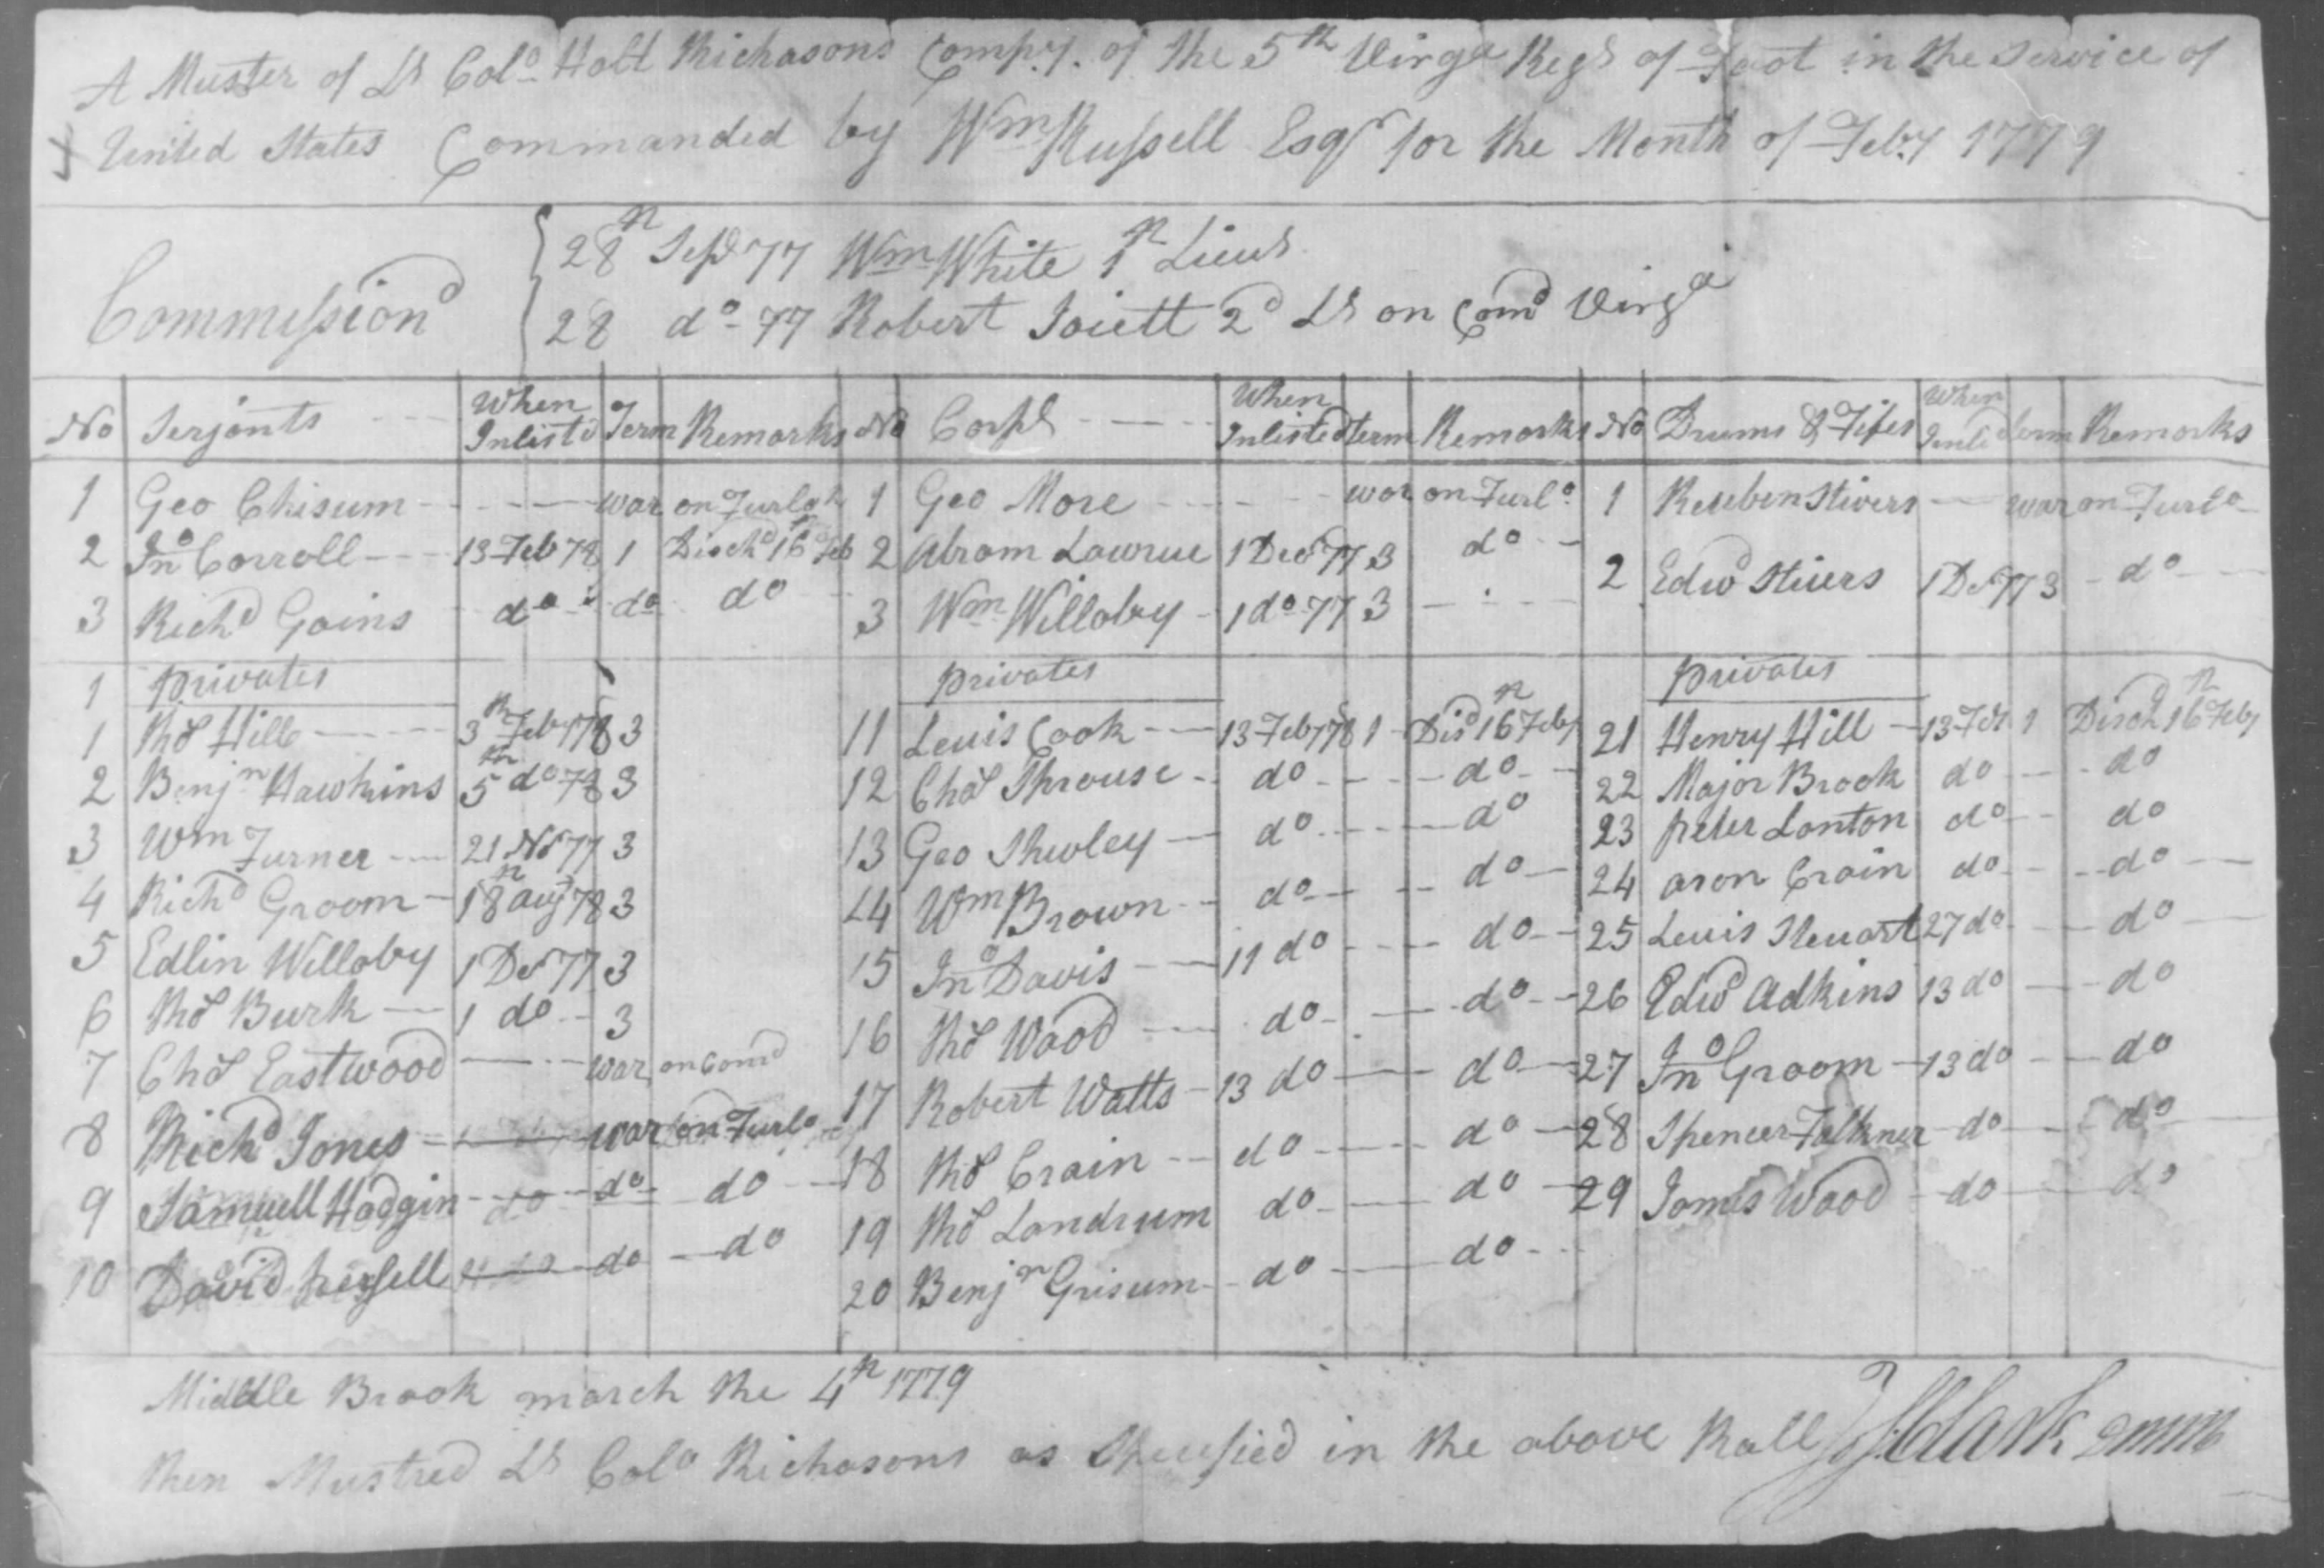 A Muster of Lt Colo Holt Richasons Compy. of the 5th Virga Regt of Foot in the Service of
United States Commanded by Wm Russell Esqr for the Month of Feby 1779
Commissiond
28th Sept 77 Wm White 1st Lieut
28 do 77 Robert Joiett 2d Lt on Comd Virga
No Serjants When Inlistd Term Remarks No Corpl When Inlisted term Remarks No Drums & Fifes When Inlisd term Remarks
1 Geo Chisum war on Furloh 1 Geo More war on Furlo 1 Reuben Stivers war on Furlo
2 Jno Corroll 13 Feb 78 1 Dischd 16th Feb 2 Abram Lawrue 1 Decr 77 3 do 2 Edwd Stiers 1 Dr 77 3 do
3 Richd Goins do do do 3 Wm Willoby 1 do 77 3
1 privates privates privates
1 Thos Hill 3th Feb 78 3 11 Lewis Cook 13 Feb 78 1 Disd 16th Feby 21 Henry Hill 13 Feb 1 Disch 16th Feby
2 Benjn Hawkins 5th do 78 3 12 Chas Throuse do do 22 Major Brook do do
3 Wm Turner 21 Nr 77 3 13 Geo Shurley do do 23 peter Lonton do do
4 Richd Groom 18th aug 78 3 14 Wm Brown do do 24 aron Crain do do
5 Edlin Willoby 1 Dr 77 3 15 Jno Davis 11 do do 25 Lewis Stewart 27 do do
6 Thos Burk 1 do 3 16 Thos Wood do do 26 Edwd Adkins 13 do do
7 Chas Eastwood war on Comd 17 Robert Watts 13 do do 27 Jno Groom 13 do do
8 Richd Jones war on Furlo 18 Thos Crain do do 28 Spencer Falkner do do
9 Samuell Hodgin do do do 19 Thos Landrum do do 29 James Wood do do
10 David do do 20 Benjn Grisum do do
Middle Brook march the 4th 1779
then Mustred Lt Colo Richasons as Speusfied in the above Roll J Clark DMM